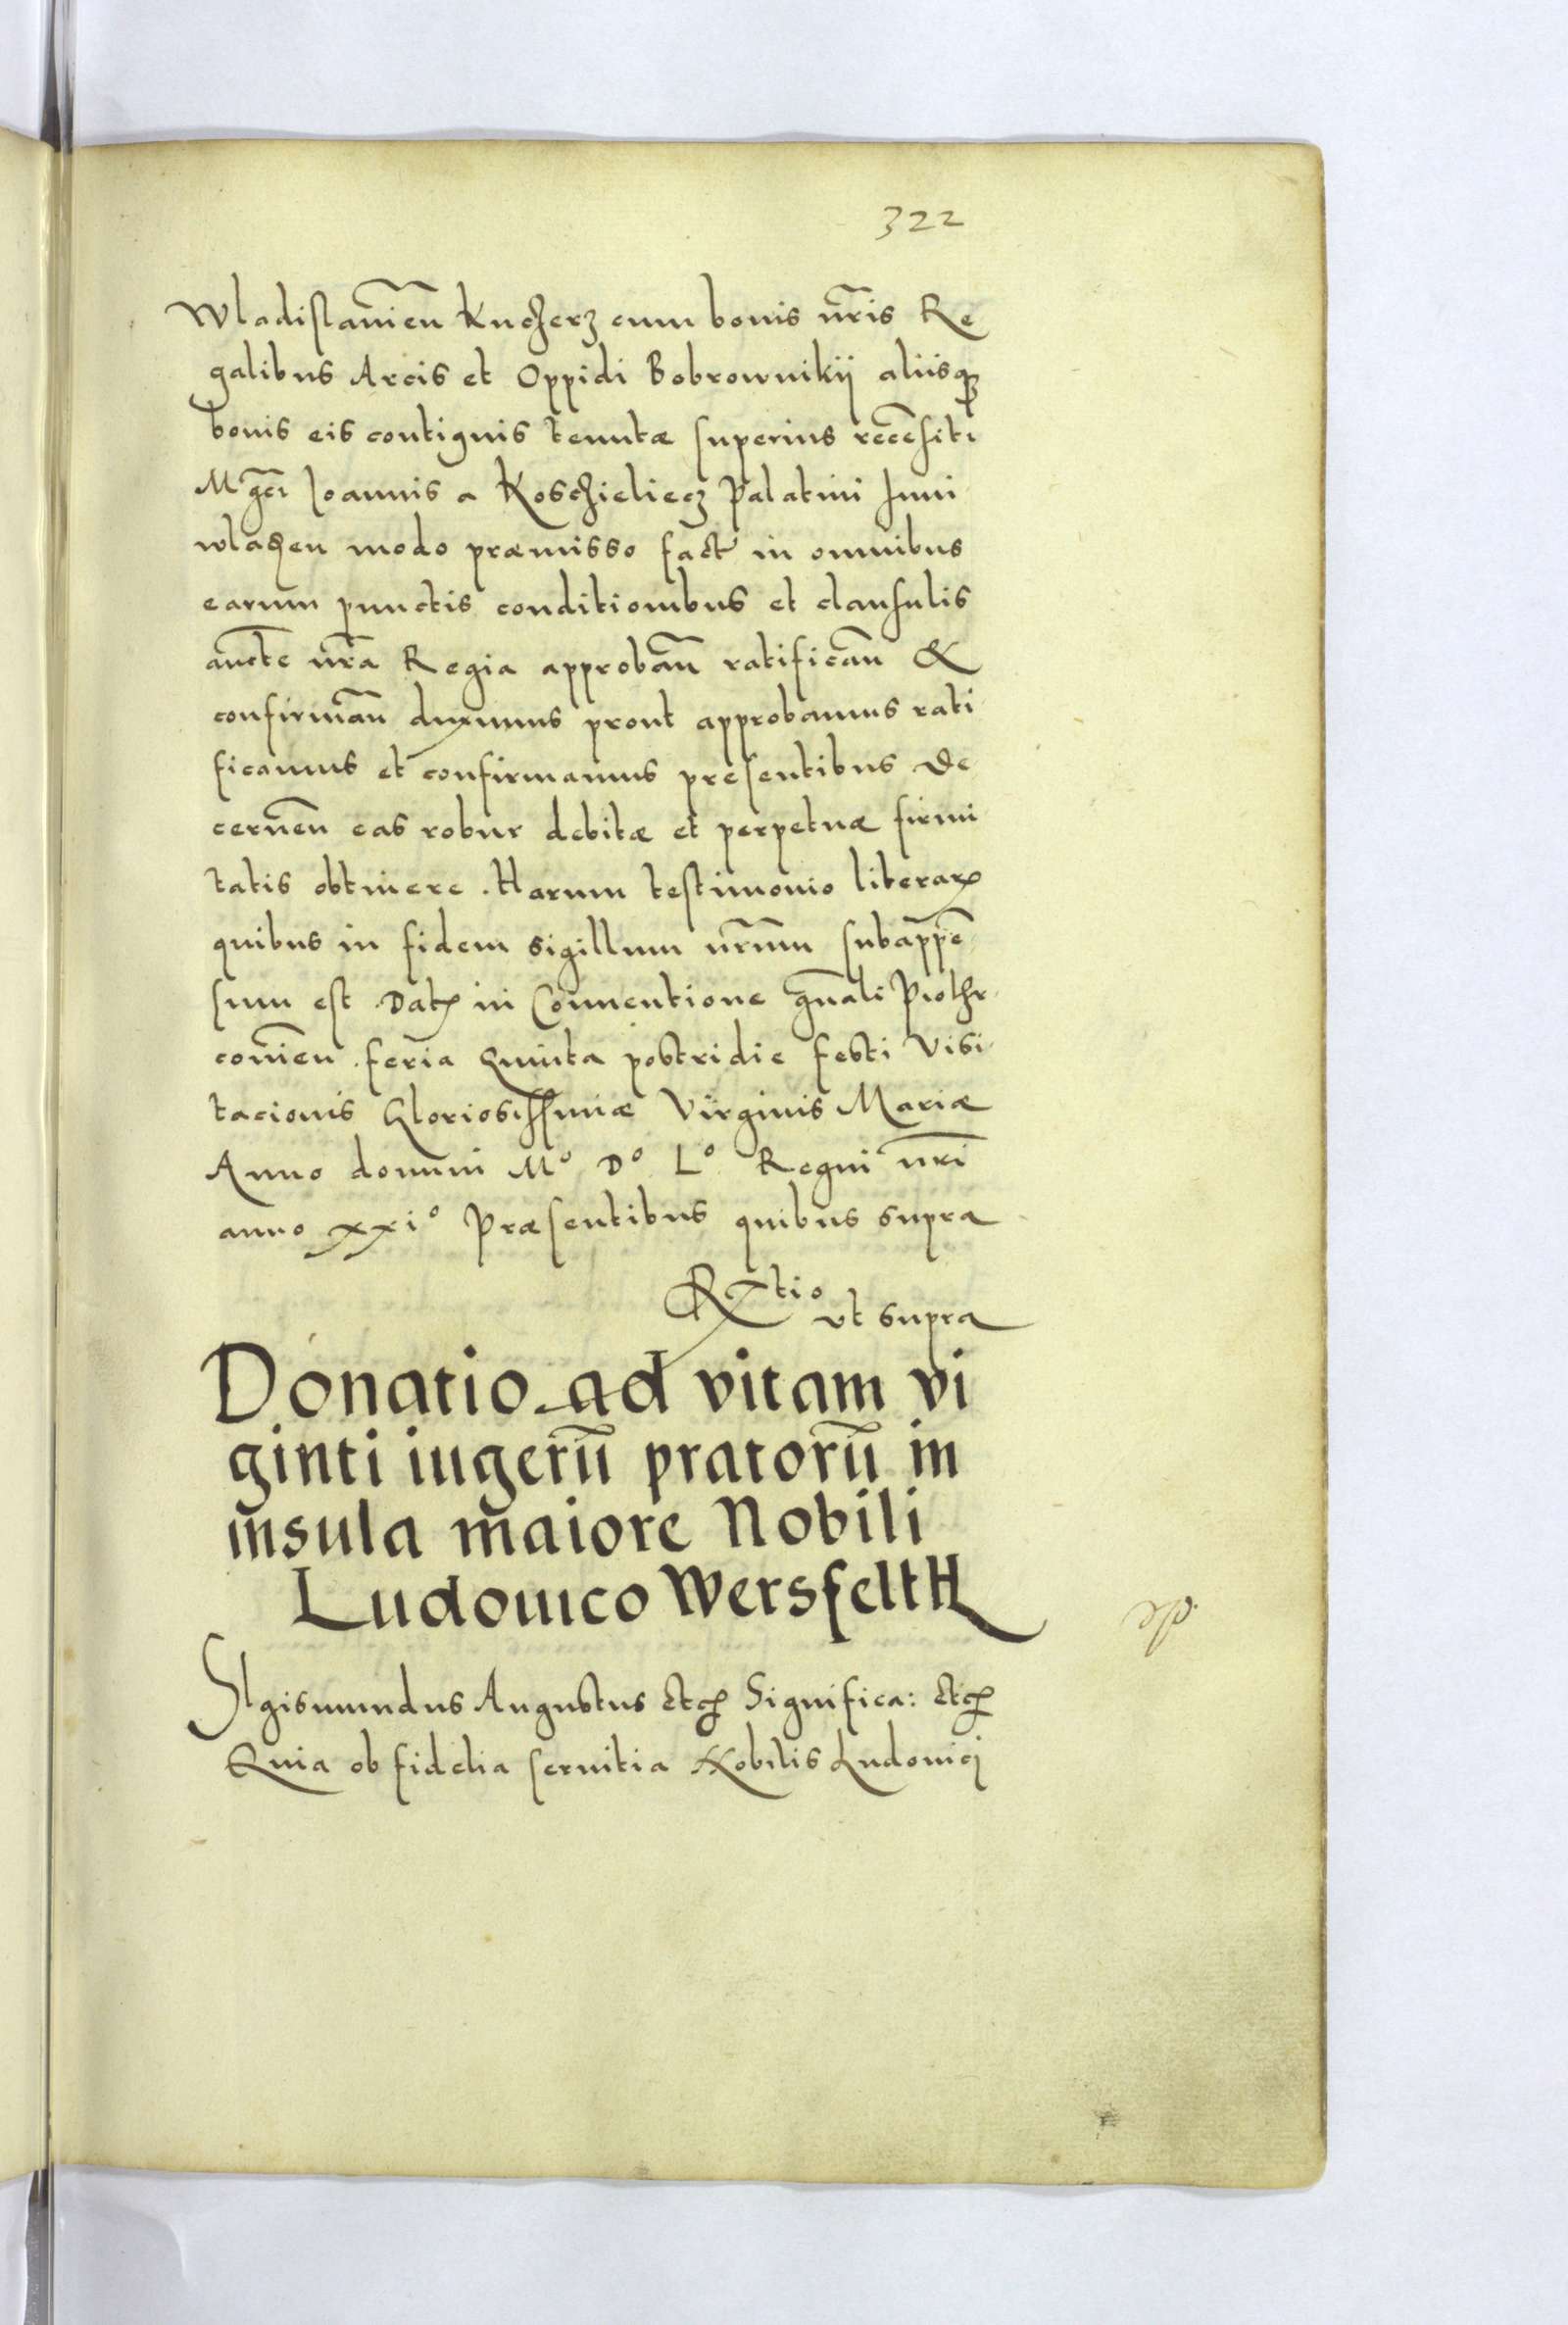 322
Wladislauien̄ Kucherz cum bonis nr̄is Re
galibus Arcis et Oppidi Bobrownikÿ aliisq₃
bonis eis contiguis tenutæ superius recēsiti
Mgc̄i Ioannis a Koschieliecz Palatini Iuni
wladen modo præmisso fact in omnibus
earum punctis conditionibus et clausulis
auctē nr̄a Regia approbān ratificān &
confirmān duximus prout approbamus rati
ficamus et confirmamus presentibus De
cernen̄ eas robur debitæ et perpetuæ firmi
tatis obtinere. Harum testimonio literarꝝ
quibus in fidem sigillum nr̄um subappē
sum est. Datꝝ in Conuentione gn̄ali Piothr
couien̄. feria Quinta postridie festi Visi
tacionis Gloriosissimæ Virginis Mariæ
Anno domini Mº Dº Lº Regni nr̄i
anno xxiº Præsentibus quibus supra
Rtio ut supra
Donatio ad vitam vi
ginti iugerū pratorū in
insula maiore Nobili
Ludouico Wersfelth
Sigismundus Augustus Etcꝭ Significa: Etcꝭ
Quia ob fidelia seruitia Nobilis Ludouici